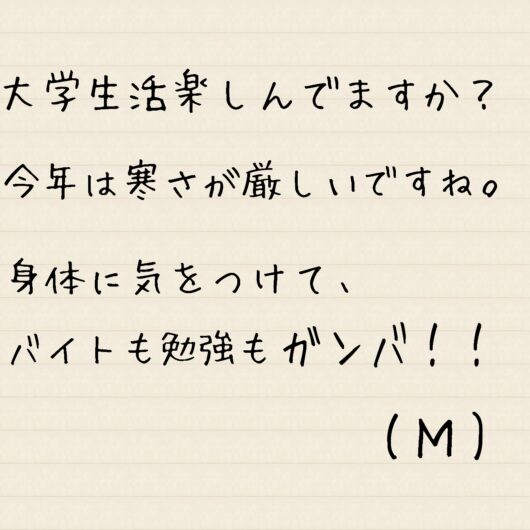 大学生活楽しんでますか?
今年は寒さが厳しいですね。
身体に気をつけて、
バイトも勉強もガンバ!!
(M)